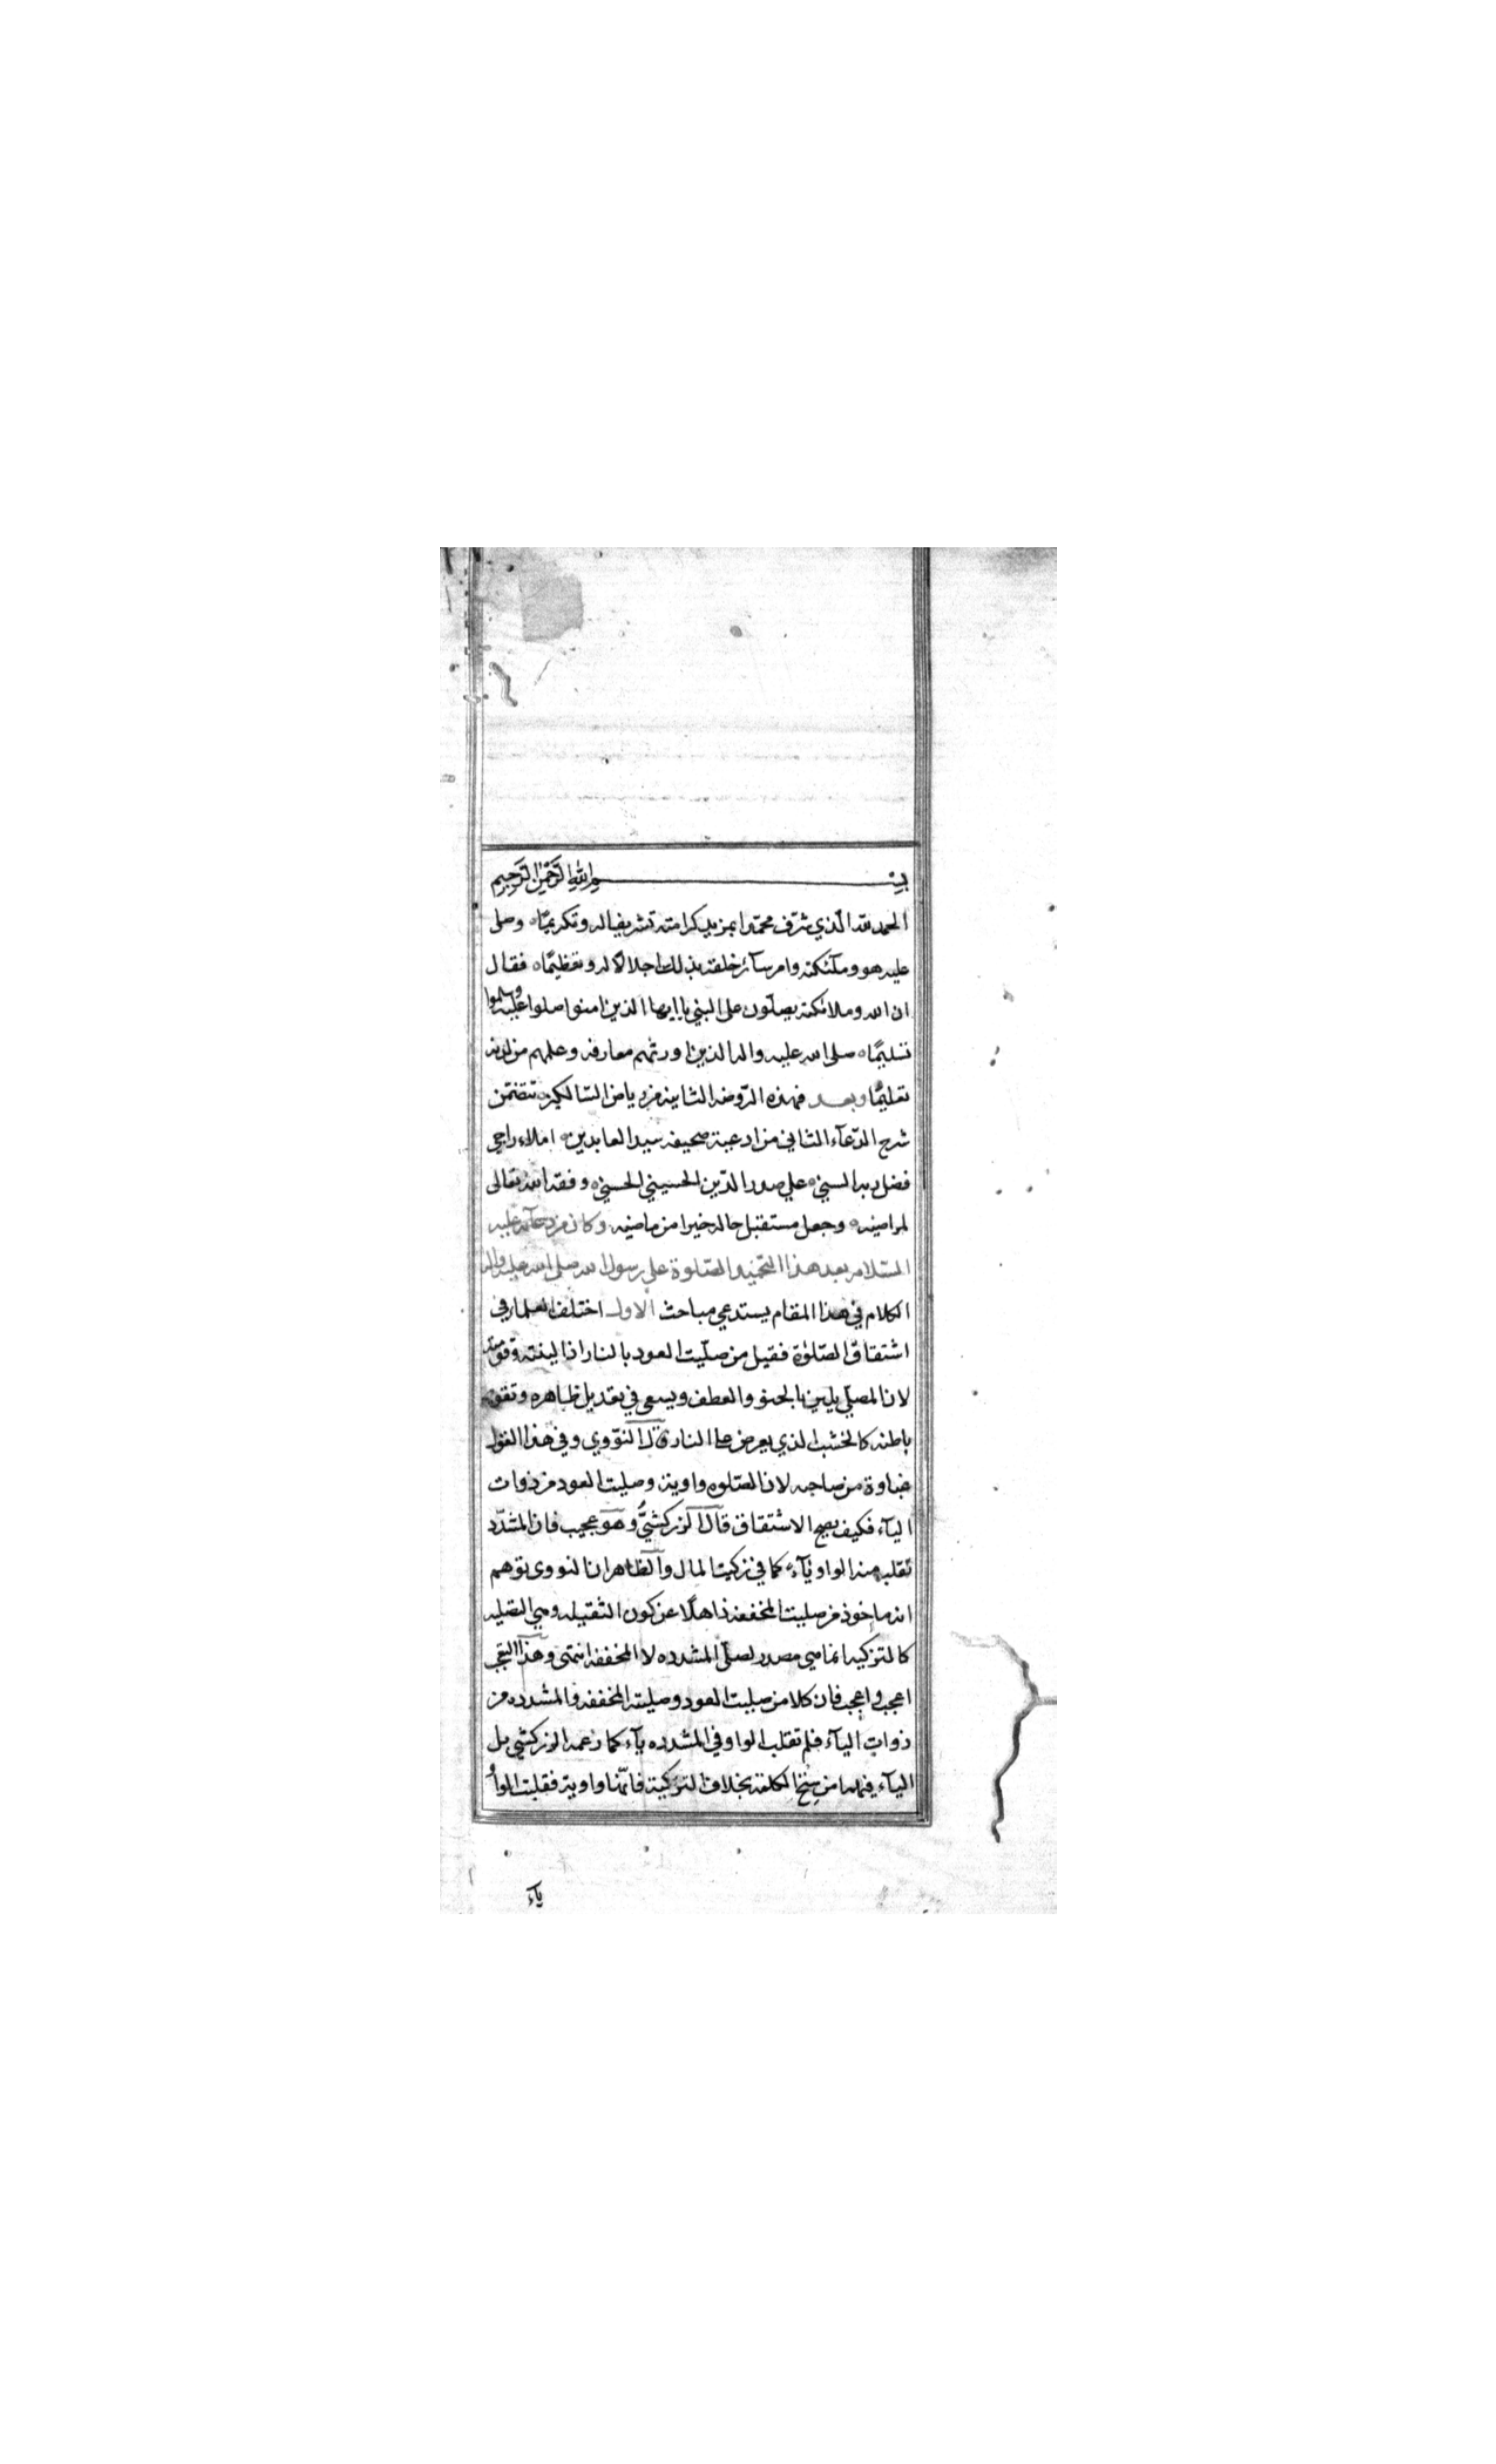 بسم الله الرحمن الرحيم
الحمد لله الذي شرّف محمّدا بمزيد كرامته تشريفا له وتكريمًا وصلى
عليه هو وملٰئكته وامر سآئر خلقته بذلك اجلالًا له وتعظيمًا فقال
ان الله وملائكته يصلّون على النبي يا ايها الذين امنوا صلوا عليه وسلموا
تسليمًا صلى الله عليه واله الذين اورثهم معارفه وعلمهم من لدنه
تعليمًا وبعد فهذه الرّوضه الثانيه من رياض السّالكين تتضمّن
شرح الدّعآء الثاني من ادعية صحيفه سيد العابدين املاء راجي
فضل ربه السني علي صدر الدّين الحسيني الحسني وفقه الله تعالى
لمراضيه وجعل مستقبل حاله خيرا من ماضيه وكان من دعآئه عليه
السّلام بعد هذا التّحميد الصّلوة على رسول الله صلى الله عليه واله
الكلام في هذا المقام يستدعي مباحث الاول اختلف العلماء في
اشتقاق الصّلوٰة فقيل من صلّيت العود بالنار اذا لينته وقومته
لان المصلّي يلين بالحنو والعطف ويسعى في تعديل ظاهره وتقويم
باطنه كالخشب الذي يعرض على النار قال النوّوي وفي هذا القول
غباوة من صاحبه لان الصّلوه واوية وصليت العود من ذوات
اليآء فكيف يصح الاشتقاق قال الزركشيّ وهو عجيب فان المشدّد
تقلب منه الواو يآء كما في زكيت المال والظاهر ان النووي توهم
انه ماخوذ من صليت المخففه ذاهلًا عن كون الثقيله وهي التصليه
كالتزكيه انما هي مصدر لصلّى المشدده لا المخففه انتهى وهذا التعجب
اعجب واعجب فان كلا من صليت العود وصليته المخففه والمشدده من
ذوات اليآء فلم تقلب الواو في المشدده يآء كما زعمه الزركشي بل
اليآء فيهما من سنخ الكلمة بخلاف التزكية فانّها واوية فقلبت الواو
يآء